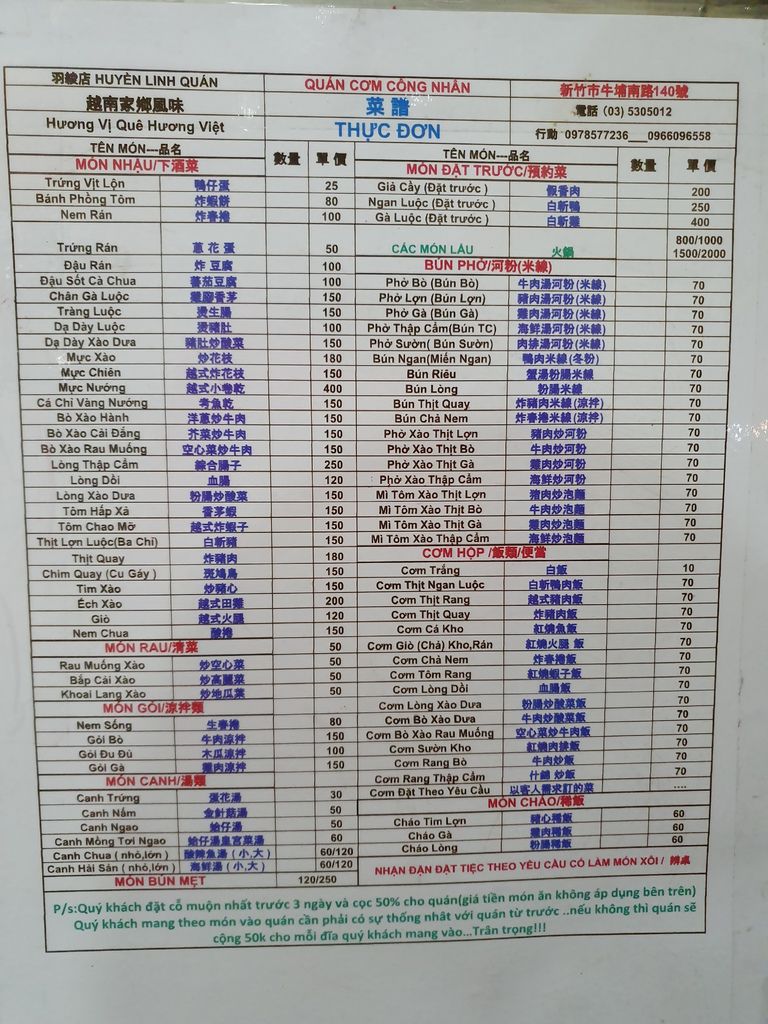 羽綾店 HUYỀN LINH QUÁN
越南家鄉風味
Hương Vị Quê Hương Việt
QUÁN CƠM CÔNG NHÂN
菜 譜
THỰC ĐƠN
新竹市牛埔南路140號
電話 (03) 5305012
行動 0978577236___0966096558
TÊN MÓN---品名 數量 單 價
MÓN NHẬU/下酒菜
Trứng Vịt Lộn 鴨仔蛋 25
Bánh Phồng Tôm 炸蝦餅 80
Nem Rán 炸春捲 100
Trứng Rán 蔥 花 蛋 50
Đậu Rán 炸 豆腐 100
Đậu Sốt Cà Chua 蕃茄豆腐 100
Chân Gà Luộc 雞腳香茅 150
Tràng Luộc 燙生腸 150
Dạ Dày Luộc 燙豬肚 100
Dạ Dày Xào Dưa 豬肚炒酸菜 150
Mực Xào 炒花枝 180
Mực Chiên 越式炸花枝 150
Mực Nướng 越式小卷乾 400
Cá Chỉ Vàng Nướng 考魚乾 150
Bò Xào Hành 洋蔥炒牛肉 150
Bò Xào Cải Đắng 芥菜炒牛肉 150
Bò Xào Rau Muống 空心菜炒牛肉 150
Lòng Thập Cẩm 綜合腸子 250
Lòng Dồi 血腸 120
Lòng Xào Dưa 粉腸炒酸菜 150
Tôm Hấp Xả 香茅蝦 150
Tôm Chao Mỡ 越式炸蝦子 150
Thịt Lợn Luộc(Ba Chỉ) 白斬豬 150
Thịt Quay 炸豬肉 180
Chim Quay (Cu Gáy ) 斑鳩鳥 150
Tim Xào 炒豬心 150
Ếch Xào 越式田雞 200
Giò 越式火腿 120
Nem Chua 酸捲 150
MÓN RAU/清菜 50
Rau Muống Xào 炒空心菜 50
Bắp Cải Xào 炒高麗菜 50
Khoai Lang Xào 炒地瓜菜 50
MÓN GỎI/涼拌類
Nem Sống 生春捲 80
Gỏi Bò 牛肉涼拌 150
Gỏi Đu Đủ 木瓜涼拌 100
Gỏi Gà 雞肉涼拌 150
MÓN CANH/湯類
Canh Trứng 蛋花湯 30
Canh Nấm 金針菇湯 50
Canh Ngao 蛤仔湯 50
Canh Mồng Tơi Ngao 蛤仔湯皇宮菜湯 60
Canh Chua ( nhỏ,lớn ) 酸辣魚湯 ( 小,大 ) 60/120
Canh Hải Sản ( nhỏ,lớn ) 海鮮湯 ( 小,大 ) 60/120
MÓN BÚN MẸT 120/250
TÊN MÓN---品名 數量 單 價
MÓN ĐẶT TRƯỚC/預約菜
Giả Cầy (Đặt trước ) 假香肉 200
Ngan Luộc (Đặt trước ) 白斬鴨 250
Gà Luộc (Đặt trước ) 白斬雞 400
CÁC MÓN LẨU 火鍋 800/1000 1500/2000
BÚN PHỞ/河粉(米線)
Phở Bò (Bún Bò) 牛肉湯河粉(米線) 70
Phở Lợn (Bún Lợn) 豬肉湯河粉(米線) 70
Phở Gà (Bún Gà) 雞肉湯河粉(米線) 70
Phở Thập Cẩm(Bún TC) 海鮮湯河粉(米線) 70
Phở Sườn( Bún Sườn) 肉排湯河粉(米線) 70
Bún Ngan(Miến Ngan) 鴨肉米線(冬粉) 70
Bún Riêu 蟹湯粉腸米線 70
Bún Lòng 粉腸米線 70
Bún Thịt Quay 炸豬肉米線(涼拌) 70
Bún Chả Nem 炸春捲米線(涼拌) 70
Phở Xào Thịt Lợn 豬肉炒河粉 70
Phở Xào Thịt Bò 牛肉炒河粉 70
Phở Xào Thịt Gà 雞肉炒河粉 70
Phở Xào Thập Cẩm 海鮮炒河粉 70
Mì Tôm Xào Thịt Lợn 豬肉炒泡麵 70
Mì Tôm Xào Thịt Bò 牛肉炒泡麵 70
Mì Tôm Xào Thịt Gà 雞肉炒泡麵 70
Mì Tôm Xào Thập Cẩm 海鮮炒泡麵 70
CƠM HỘP /飯類/便當
Cơm Trắng 白飯 10
Cơm Thịt Ngan Luộc 白斬鴨肉飯 70
Cơm Thịt Rang 越式豬肉飯 70
Cơm Thịt Quay 炸豬肉飯 70
Cơm Cá Kho 紅燒魚飯 70
Cơm Giò (Chả) Kho,Rán 紅燒火腿 飯 70
Cơm Chả Nem 炸春捲飯 70
Cơm Tôm Rang 紅燒蝦子飯 70
Cơm Lòng Dồi 血腸飯 70
Cơm Lòng Xào Dưa 粉腸炒酸菜飯 70
Cơm Bò Xào Dưa 牛肉炒酸菜飯 70
Cơm Bò Xào Rau Muống 空心菜炒牛肉飯 70
Cơm Sườn Kho 紅燒肉排飯 70
Cơm Rang Bò 牛肉炒飯 70
Cơm Rang Thập Cẩm 什錦 炒飯 70
Cơm Đặt Theo Yêu Cầu 以客人需求訂的菜 ....
MÓN CHÁO/稀飯
Cháo Tim Lợn 豬心稀飯 60
Cháo Gà 雞肉稀飯 60
Cháo Lòng 粉腸稀飯 60
NHẬN ĐẶN ĐẶT TIỆC THEO YÊU CẦU CÓ LÀM MÓN XÔI / 辦桌
P/s:Quý khách đặt cỗ muộn nhất trước 3 ngày và cọc 50% cho quán(giá tiền món ăn không áp dụng bên trên)
Quý khách mang theo món vào quán cần phải có sự thống nhât với quán từ trước ..nếu không thì quán sẽ
cộng 50k cho mỗi đĩa quý khách mang vào...Trân trọng!!!